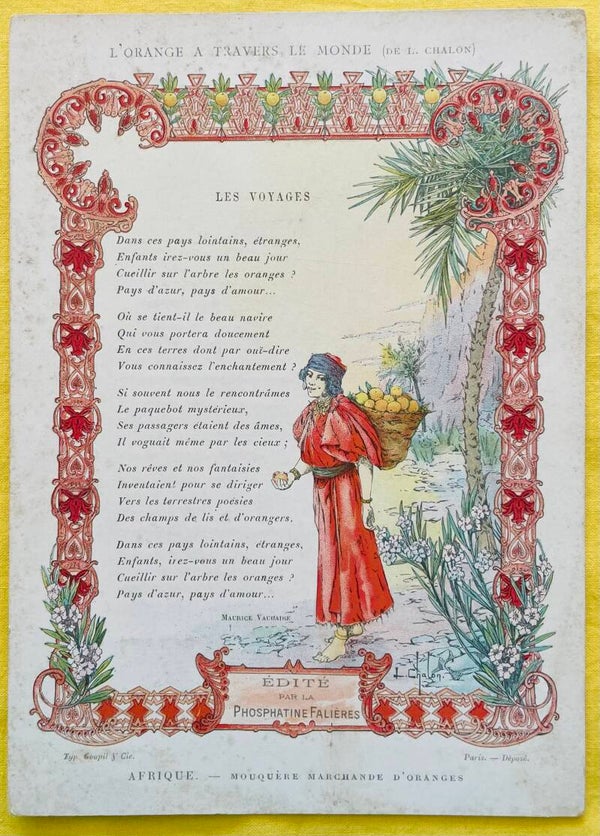 L'ORANGE A TRAVERS LE MONDE (DE L. CHALON)
LES VOYAGES
Dans ces pays lointains, étranges,
Enfants irez-vous un beau jour
Cueillir sur l'arbre les oranges ?
Pays d'azur, pays d'amour...
Où se tient-il le beau navire
Qui vous portera doucement
En ces terres dont par ouï-dire
Vous connaissez l'enchantement ?
Si souvent nous le rencontrâmes
Le paquebot mystérieux,
Ses passagers étaient des âmes,
Il voguait même par les cieux ;
Nos rêves et nos fantaisies
Inventaient pour se diriger
Vers les terrestres poésies
Des champs de lis et d'orangers.
Dans ces pays lointains, étranges,
Enfants, irez-vous un beau jour
Cueillir sur l'arbre les oranges ?
Pays d'azur, pays d'amour...
MAURICE VAUCAIRE
L. Chalon.
ÉDITÉ
PAR LA
PHOSPHATINE FALIÈRES
Typ. Goupil & Cie.
Paris. — Déposé.
AFRIQUE. — MOUQUÈRE MARCHANDE D'ORANGES